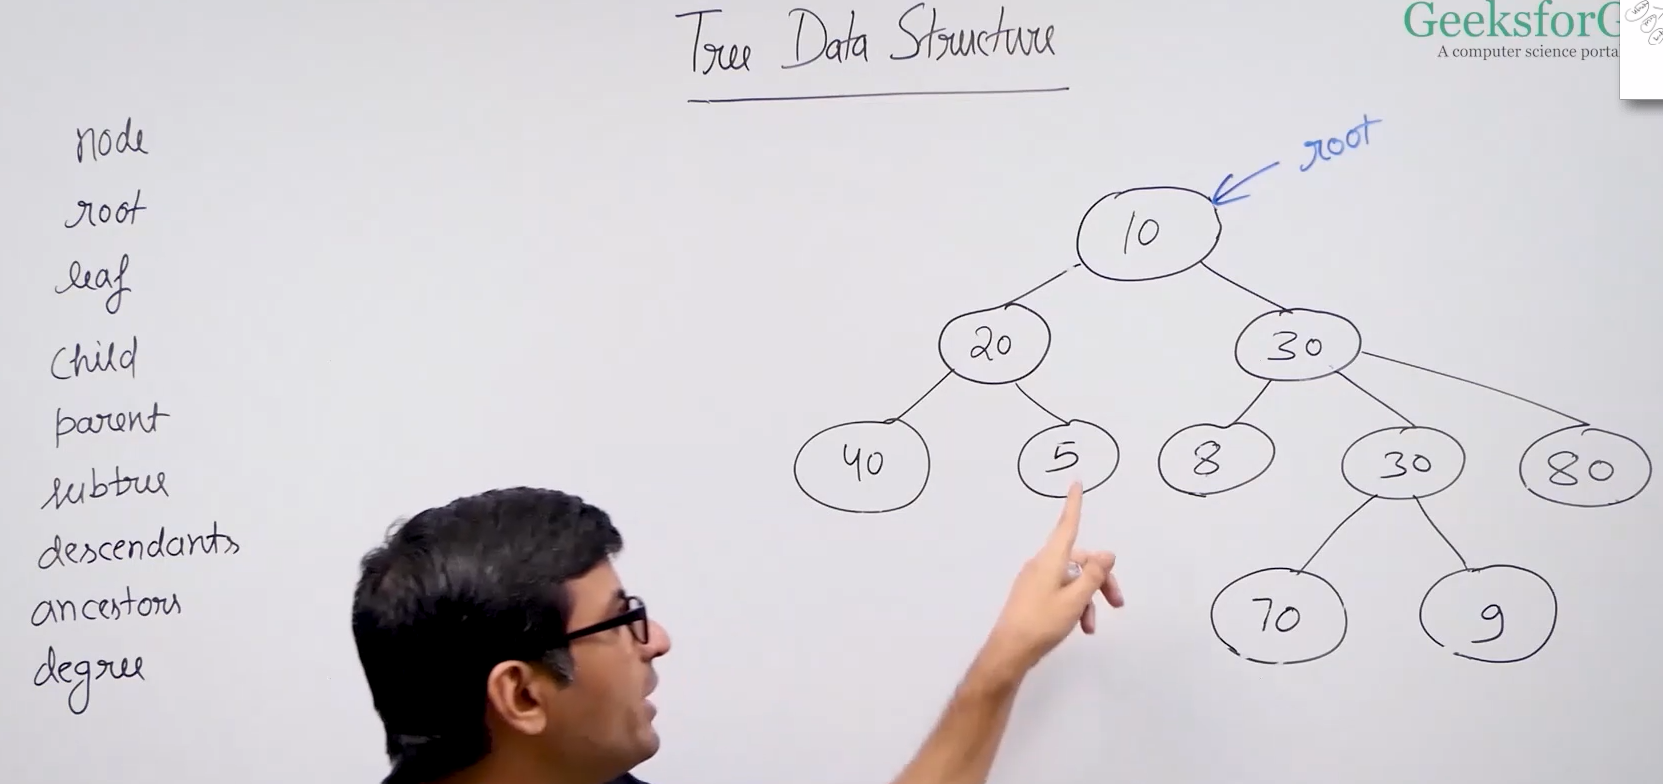 Tree Data Structure
GeeksforG
A computer science porta
node
root
leaf
child
parent
subtree
descendants
ancestors
degree
root
10
20
30
40
5
8
30
80
70
9